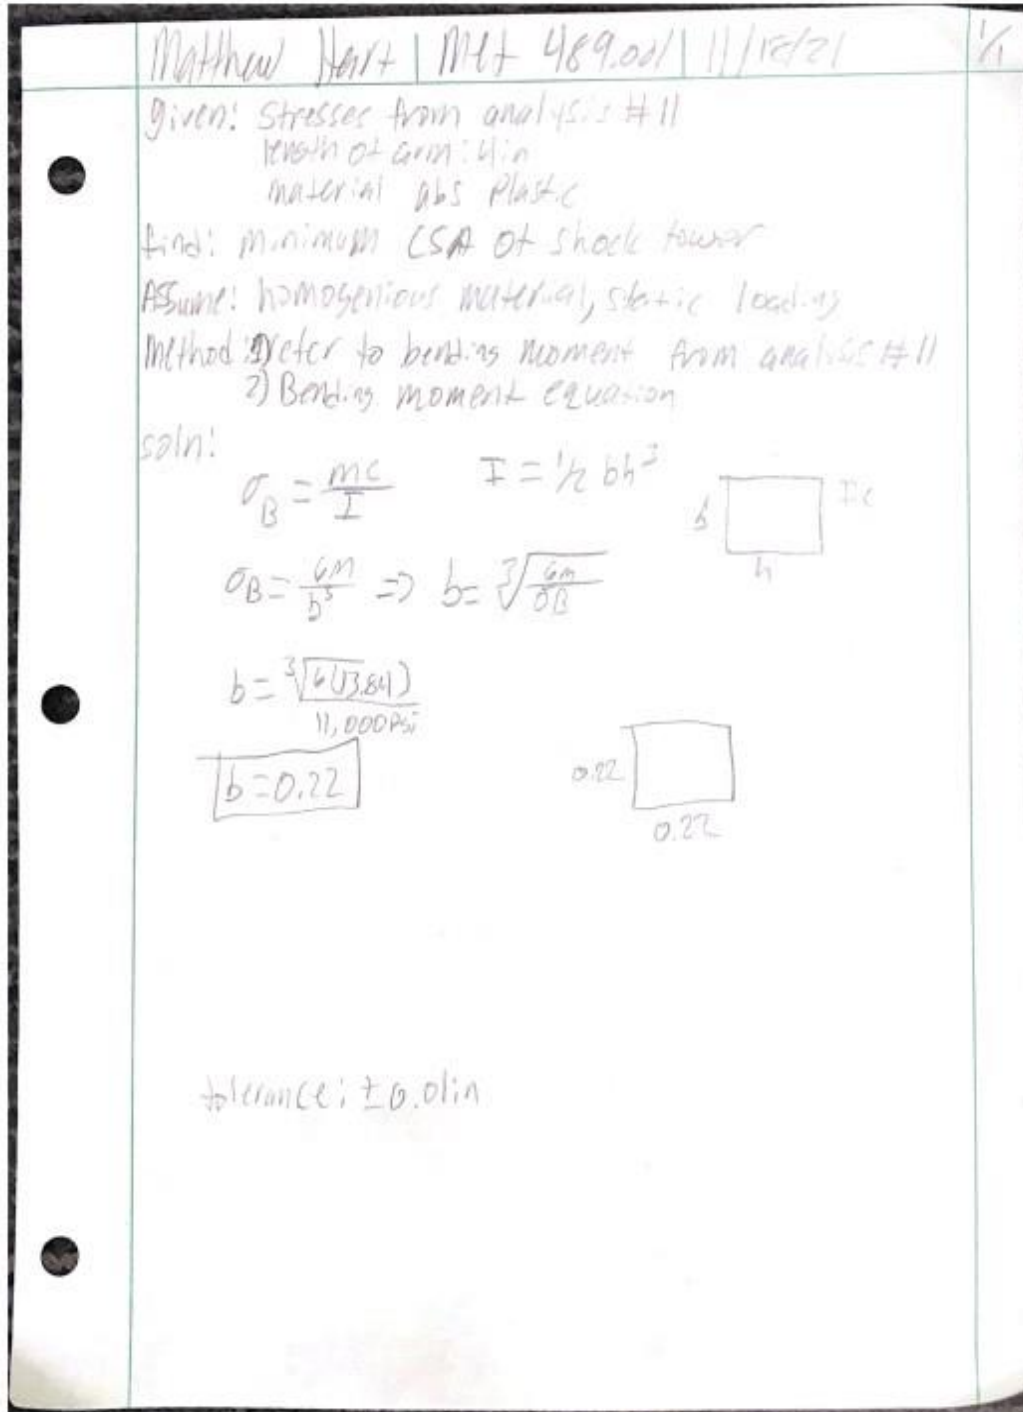 Matthew Hart | Met 489.001 | 11/18/21 1/1
given: Stresses from analysis #11
length of arm: 4in
material abs Plastic
find: minimum CSA of shock tower
Assume: homogenious material, static loading
Method: 1) refer to bending moment from analysis #11
2) Bending moment equation
soln:
σB = mc/I I = 1/12 bh³
b Ic
h
σB = 6M/b³ => b = ∛(6m/σB)
b = ∛6(13.84)/11,000 PSi
b = 0.22
0.22
0.22
tolerance: ±0.01in